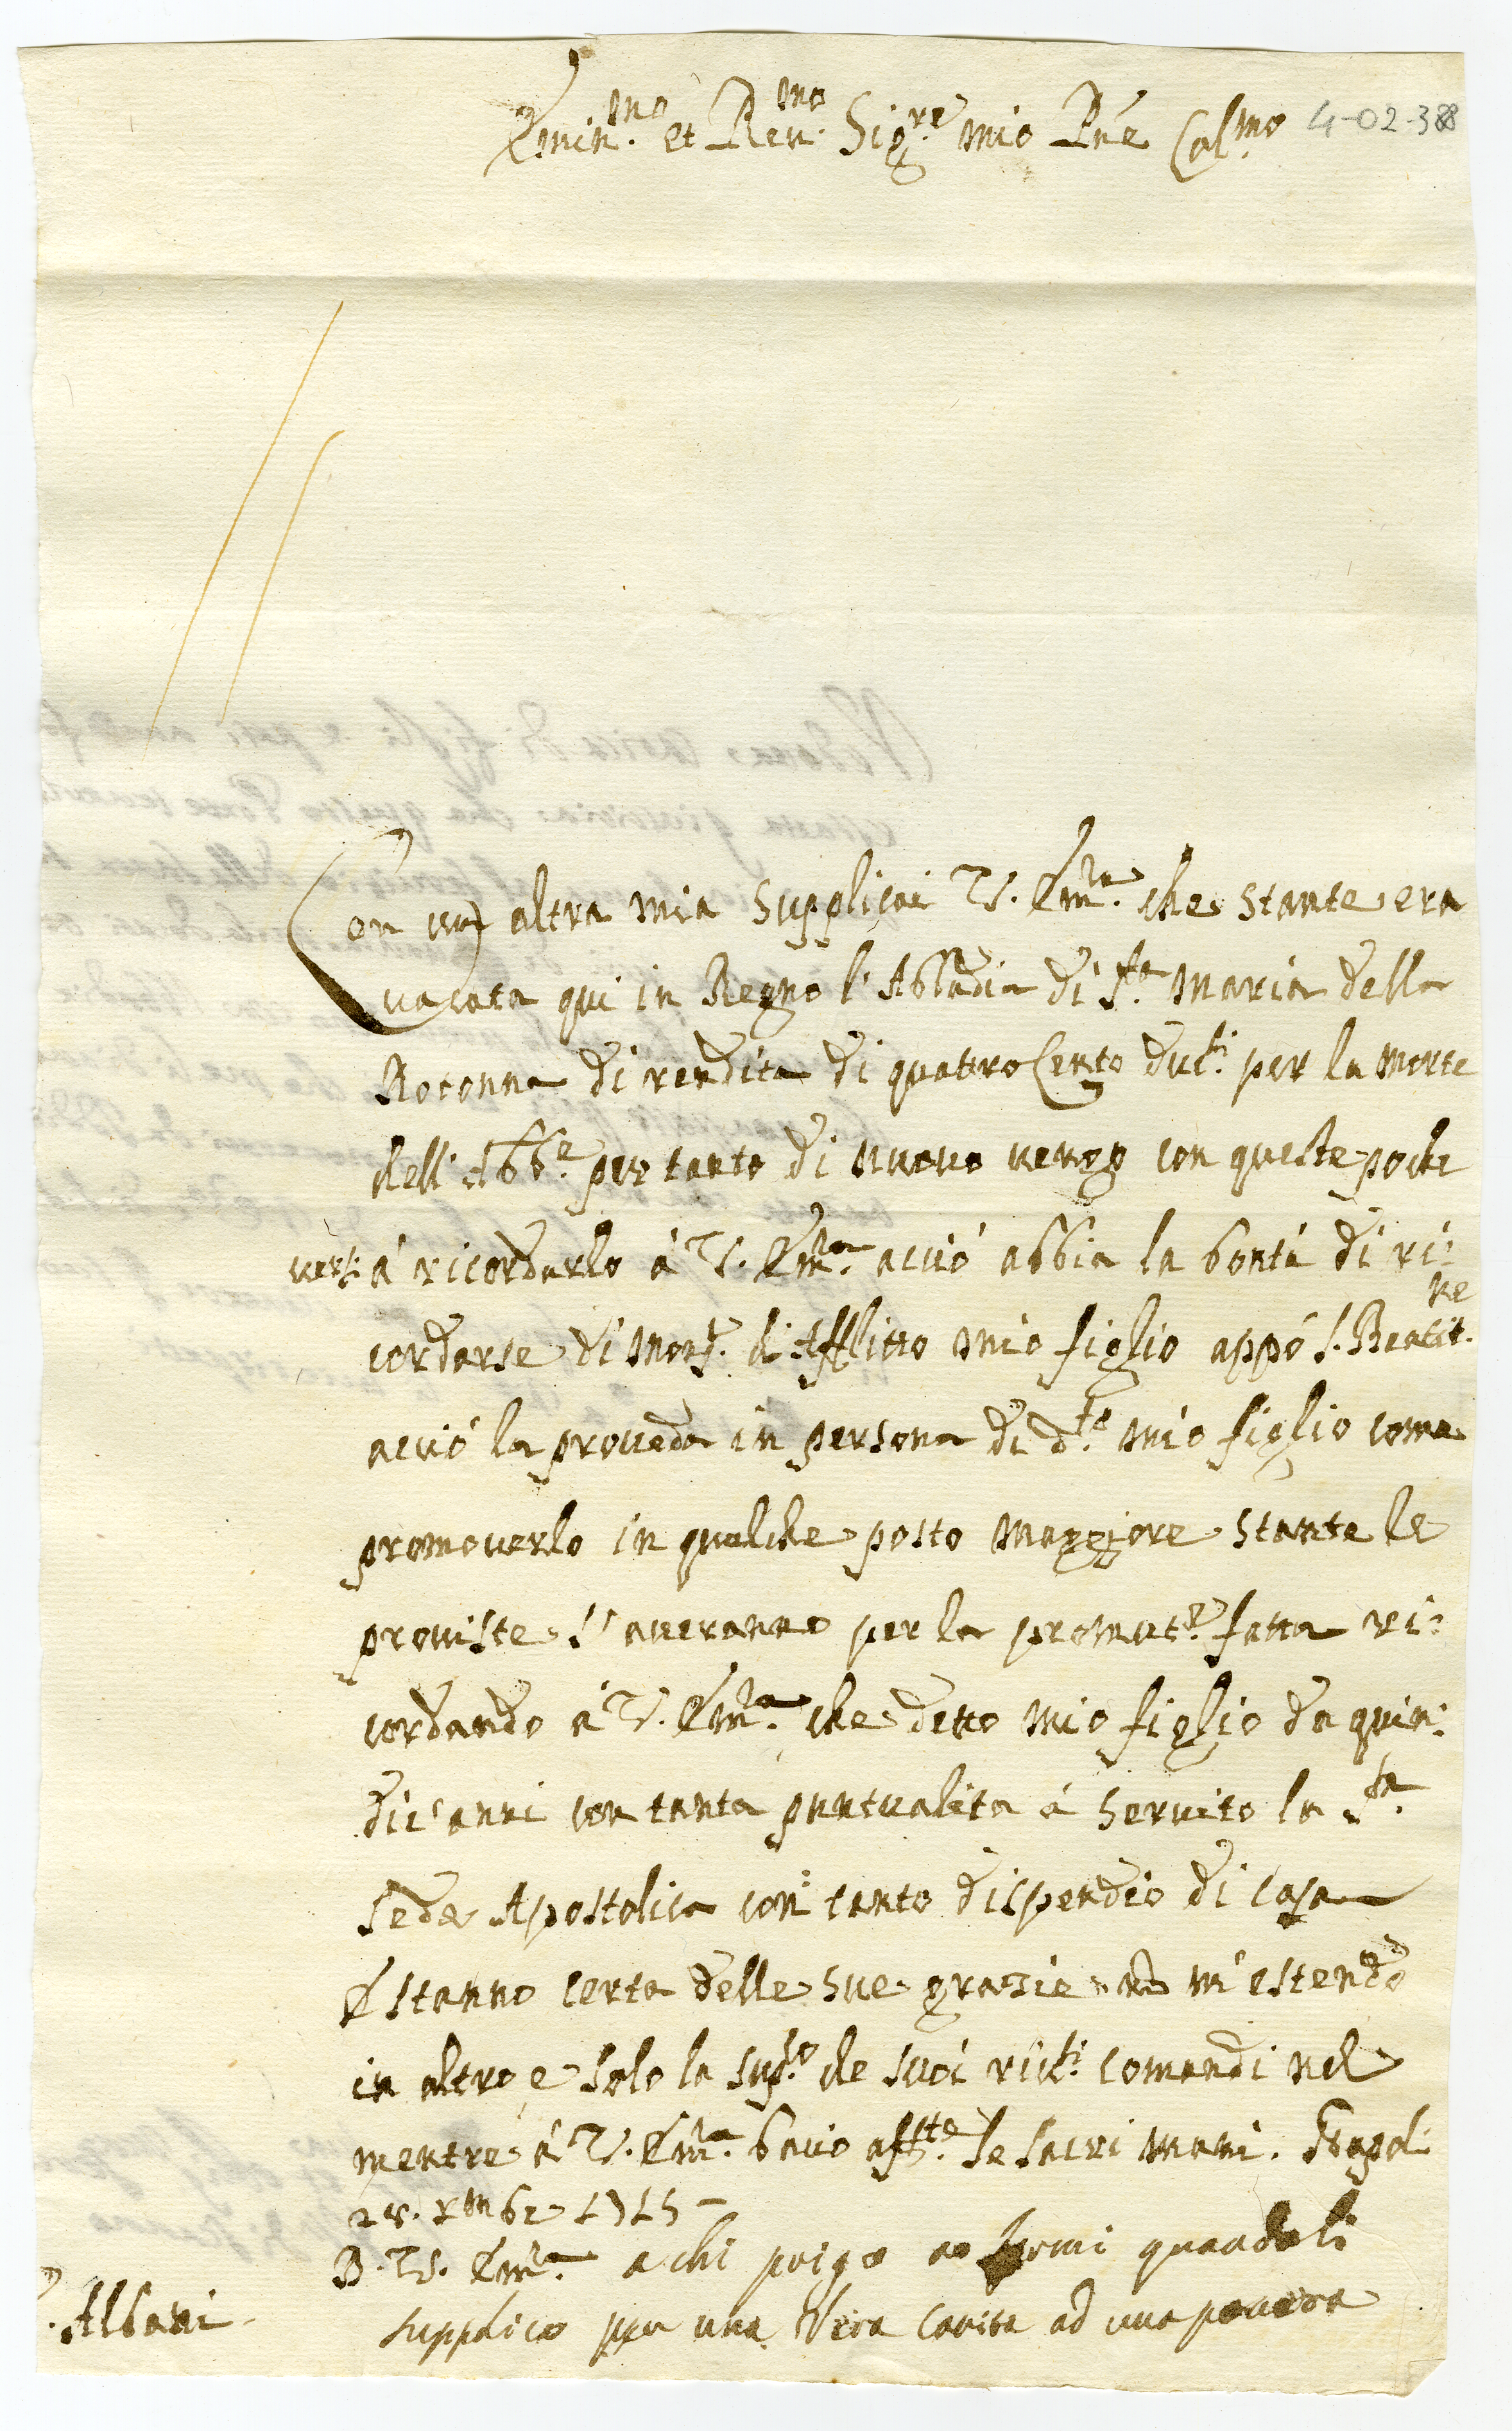 Emin.mo et Reu.mo Sig.re mio Pñe Col.mo 4-02-388
Con un altra mia supplicai V. Em.za che stante era
vacata qui in Regno l'Abbadia di S.ta Maria della
Rotonna di rendita di quattro Cento duc.ti per la morte
dell'Abb.e per tanto di nuovo vengo con queste poche
versi á ricordarlo á V. Em.za acció abbia la bontá di ri:
cordarse di Mons.r d'Afflitto mio figlio appó S. Beatit.ne
acció la proveda in persona di d.to mio figlio come
promoverlo in qualche posto maggiore stante le
proviste s'averanno per la promot.e fatta ri:
cordando á V. Em.za che detto mio figlio da quin:
dic'anni con tanta puntualita á servito la S.ta
Sede Apostolica con tanto dispendio di casa
E stanno certa delle sue grazie no m'estendo
in altro e solo la sup.co de suoi riv.ti comandi nel
mentre á V. Em.za bacio aff.te le sacri mani. Napoli
Xmbre 1715
D. V. Em.za a chi priego quando li
supplico per una Vera Carita ad una povera
Albani